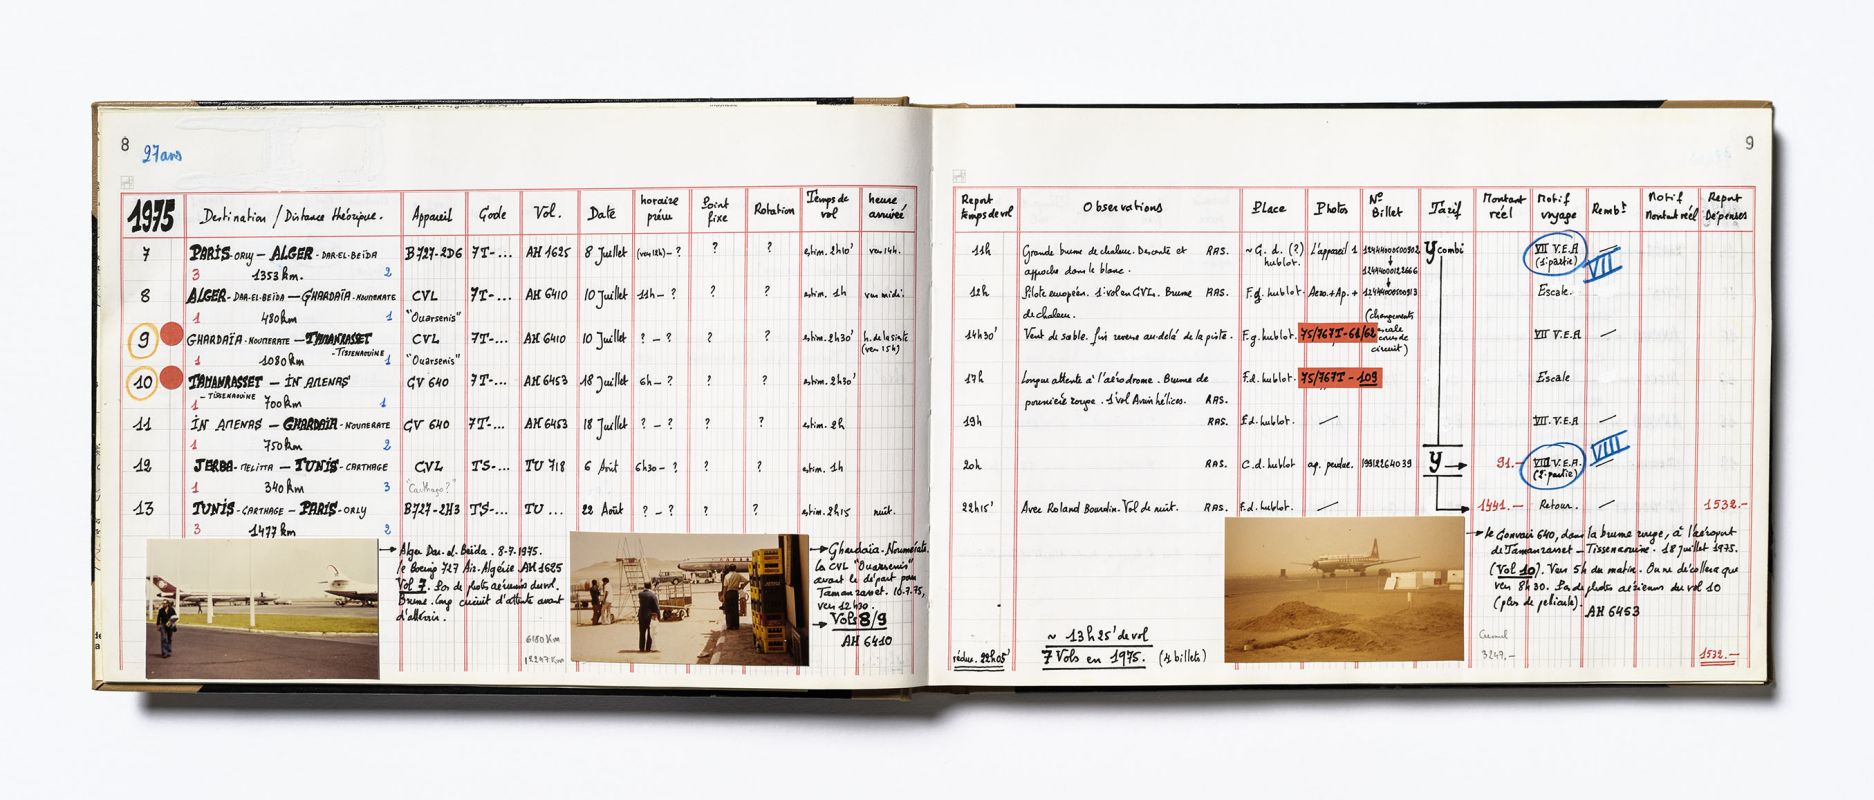 8
27 ans
1975
Destination / Distance théorique.
Appareil
Code
Vol.
Date
horaire
prévu
Point
fixe
Rotation
Temps de
vol
heure
arrivée
7
PARIS-ORLY — ALGER - DAR-EL-BEÏDA
B727-2D6
7T-...
AH 1625
8 Juillet
(vers 12h) - ?
?
?
estim. 2h10'
vers 14h.
3
1353 km.
2
8
ALGER - DAR-EL-BEÏDA — GHARDAÏA - NOUMERATE
CVL
7T-...
AH 6410
10 Juillet
11h - ?
?
?
estim. 1h
vers midi
1
480 km
1
"Ouarsenis"
9
GHARDAÏA - NOUMERATE — TAMANRASSET
CVL
7T-...
AH 6410
10 Juillet
? - ?
?
?
estim. 2h30'
h. de la sieste
- TISSENAOUINE
(vers 15h)
1
1080 km
1
"Ouarsenis"
10
TAMANRASSET — IN AMENAS
CV 640
7T-...
AH 6453
18 Juillet
6h - ?
?
?
estim. 2h30'
- TISSENAOUINE
1
700 km
1
11
IN AMENAS — GHARDAÏA - NOUMERATE
CV 640
7T-...
AH 6453
18 Juillet
? - ?
?
?
estim. 2h
1
750 km
2
12
JERBA - MELITTA — TUNIS - CARTHAGE
CVL
TS-...
TU 718
6 Août
6h30 - ?
?
?
estim. 1h
1
340 km
3
"Carthago?"
13
TUNIS - CARTHAGE — PARIS - ORLY
B727-2H3
TS-...
TU ...
22 Août
? - ?
?
?
estim. 2h15
nuit.
3
1477 km
2
Alger Dar-el-Beïda. 8-7-1975.
le Boeing 727 Air-Algérie AH 1625
Vol 7. Pas de photos aériennes du vol.
Brume. Long circuit d'attente avant
d'atterrir.
6180 Km
12247 Km
Ghardaïa-Noumérate.
La CVL "Ouarsenis"
avant le départ pour
Tamanrasset. 10.7.75,
vers 12h30.
Vols 8/9
AH 6410
9
Report
temps de vol
Observations
Place
Photos
No
Billet
Tarif
Montant
réel
Motif
voyage
Rembt
Motif
Montant réel
Report
Dépenses
11h
Grande brume de chaleur. Descente et
RAS.
~ G. d. (?)
L'appareil 1
Y combi
VII V.E.A
approche dans le blanc.
hublot.
(1e partie)
VII
12h
Pilote européen. 1er vol en CVL. Brume
RAS.
F.g. hublot.
Aero. + Ap. +
Escale.
de chaleur.
(changements
14h30'
Vent de sable. fini reverse au-delà de la piste.
F.g. hublot.
75/767T-61/62
VII V.E.A
circuit)
17h
Longue attente à l'aérodrome. Brume de
F.d. hublot.
75/767T - 109
Escale
poussière rouge. 1er vol Avion hélices.
RAS.
19h
RAS.
F.d. hublot.
VII V.E.A
20h
RAS.
C.d. hublot
ap. perdue.
19912264039
Y
91.-
VIII V.E.A.
(2e partie)
VIII
22h15'
Avec Roland Bourdin. Vol de nuit.
RAS.
F.d. hublot.
1441.—
Retour.
1532.-
le Convair 640, dans la brume rouge, à l'aéroport
de Tamanrasset - Tissenaouine. 18 Juillet 1975.
(Vol 10). Vers 5h du matin. On ne décollera que
vers 8h30. Pas de photos aériennes du vol 10
(plus de pellicule).
AH 6453
Cumul
3247.-
réduc. 22h05'
~ 13h25' de vol
7 Vols en 1975. (4 billets)
1532.-